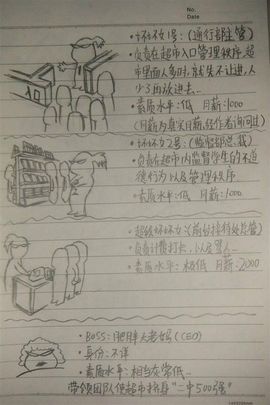 No.
Date
·坏坏女1号:(通行部主管)
·负责在超市入口管理秩序,超
市里面人多时,就先不让进,人
少了再放进去...
·素质水平:低 月薪:1000
(月薪为真实月薪,经作者询问过)
·坏坏女2号:(监督部总裁)
·负责在超市内监督学生的不道
德行为以及管理秩序。
·素质水平:低 月薪:1000.
·超级坏坏女(前台接待处总管)
·负责计费打卡,以及骂人...
·素质水平:极低 月薪:2000
·BOSS:肥胖大老娘(CEO)
·身份:不详
·素质水平:相当灰常低...
带领团队使超市挤身“二中500强”